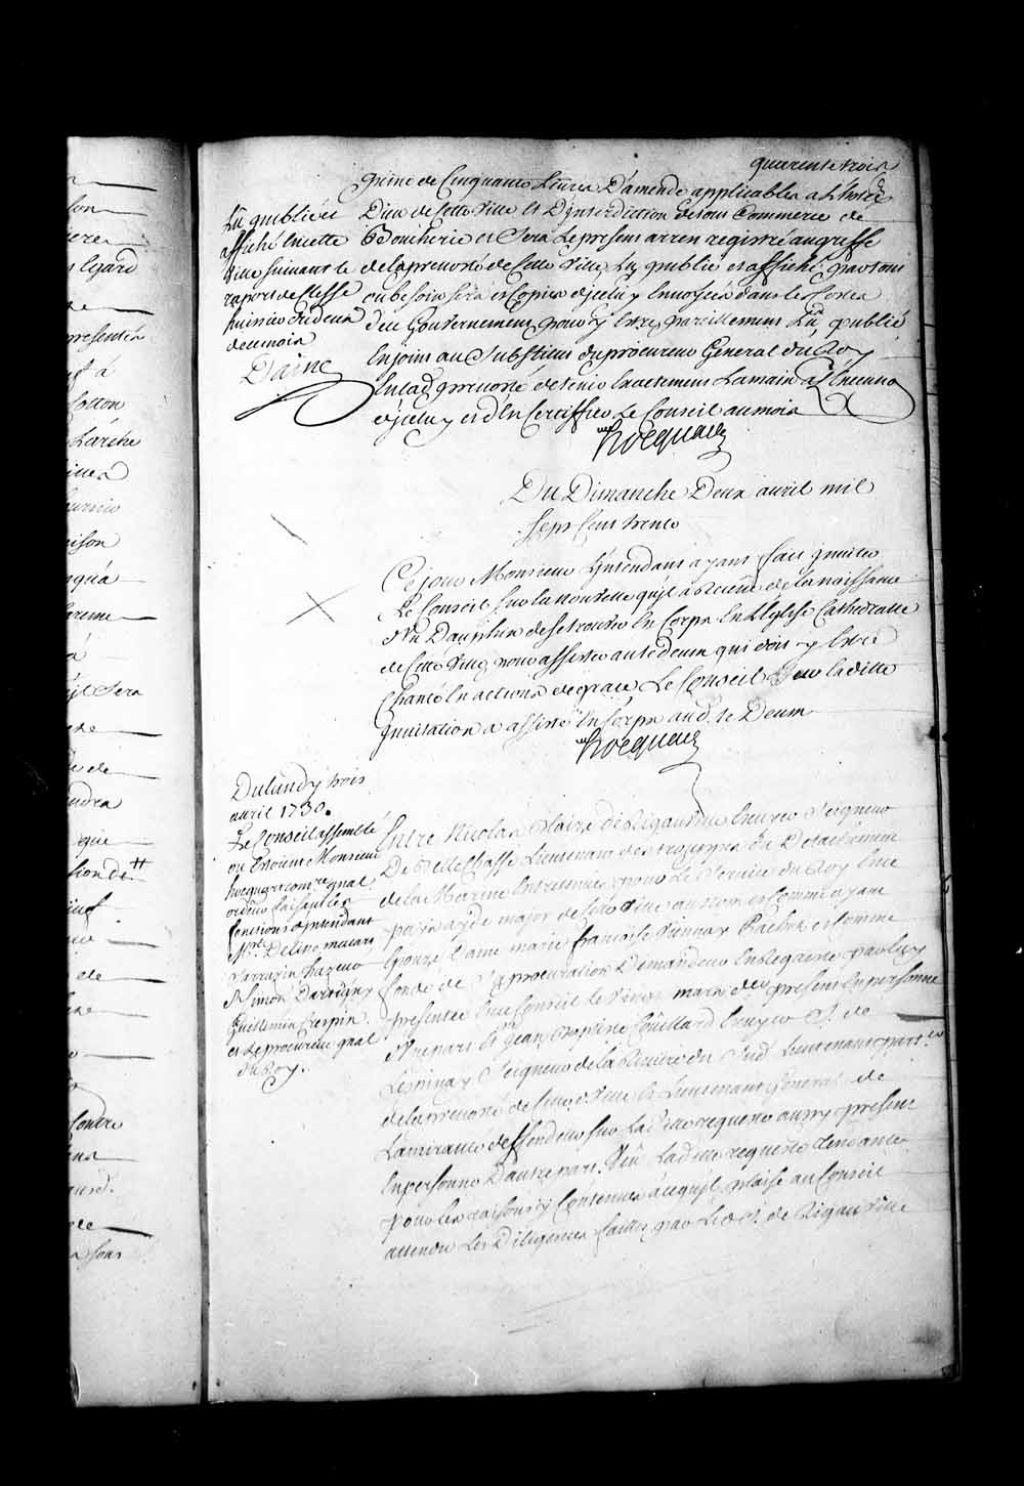 quarente trois
peine de Cinquante Livres D'amende applicables a L'hotel
Dieu de Cette Ville Et D'Interdiction de tout Commerce de
Boucherie et Sera Le present arrest registré au greffe
de la prevosté de Cette Ville, Lû publié et affiché partout
ou besoin sera et Copies d'jceluy Envoyées dans les Costes
de ce Gouvernement pour y Estre pareillement Lû, publié
Enjoint au Substitut du procureur General du Roy
En lad. prevosté de tenir Exactement La main a L'execution
d'jceluy et d'En Certiffier Le Conseil au mois
hocquart
Lû publié et
affiché En cette
Ville suivant le
raport de Clesse
huissier
de ce mois
Daine
Du Dimanche Deux avril mil
sept Cent trente
Ce jour Monsieur L'jntendant ayant fait jnviter
Le Conseil Sur la nouvelle qu'jl a de la naissance
d'un Dauphin de se trouver En Corps En L'Eglise Cathedralle
de Cette Ville, pour assister au te deum qui doit y Estre
Chanté En actions de grace Le Conseil Sur la ditte
jnvitation a assisté En Corps aud. te Deum
hocquart
Du lundy trois
avril 1730.
Le Conseil assemblé
ou Etoient Monsieur
hocquart comre gnal
ordre faisant les
fonctions d'jntendant
Mrs. Delino macart
Sarrazin hazeur
St Simon Dartigny
Guillemin Crespin
et Le procureur gnal
du Roy.
Entre Nicolas Blaize de Rigauville Ecuyer Seigneur
De Bellechasse Lieutenant des troupes du Détachement
de la Marine Entretenues pour Le Service du Roy En ce
pais ayde major de Cette Ville au nom et Comme ayant
Epousé Dame marie françoise Viennay Pachot et Comme
fondé de Sa procuration Demandeur En Requeste par luy
presentée En ce Conseil le Vingt mars der present En personne
D'une part Et Jean Baptiste Coüillard Ecuyer Sr. de
Lespinay Seigneur de la Riviere du Sud Lieutenant part.er
de la prevosté de Cette Ville Et Lieutenant General de
Lamirauté deffendeur Sur La ditte requeste aussy present
En personne D'autre part. Vû La ditte requeste tendante
pour les raisons y Contenues a ce qu'jl plaise au Conseil
attendu Les Diligences faittes par led. Sr. de Rigauville